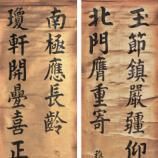 玉節鎮嚴疆仰
北門膺重寄
南極應長齡
瓊軒開疊喜正